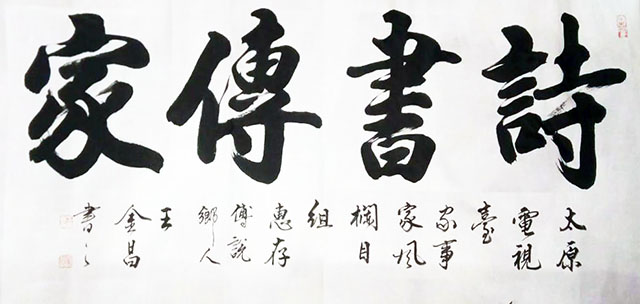 詩書傳家
太原
電視
臺
家事
家風
欄目
組
惠存
傅說
鄉人
王
金昌
書之